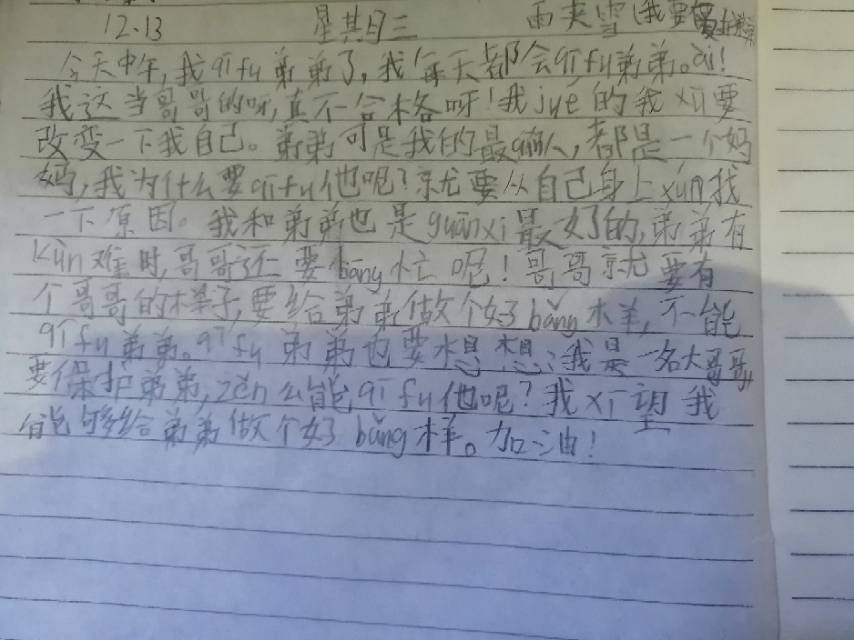 12.13 星其日三 雨夹雪(我要
今天中午,我qīfu弟弟了,我每天都会qīfu弟弟。ài!
我这当哥哥的呀,真不合格呀!我jué的我xū要
改变一下我自己。弟弟可是我的最qīn人,都是一个妈
妈,我为什么要qīfu他呢?就要从自己身上xún找
一下原因。我和弟弟也是guānxi最好的,弟弟有
kùn难时,哥哥还要bāng忙呢!哥哥就要有
个哥哥的样子,要给弟弟做个好bǎng样,不能
qīfu弟弟。qīfu弟弟也要想想:我是一名大哥哥,
要保护弟弟,zěn么能qīfu他呢?我xī望我
能够给弟弟做个好bǎng样。加油!